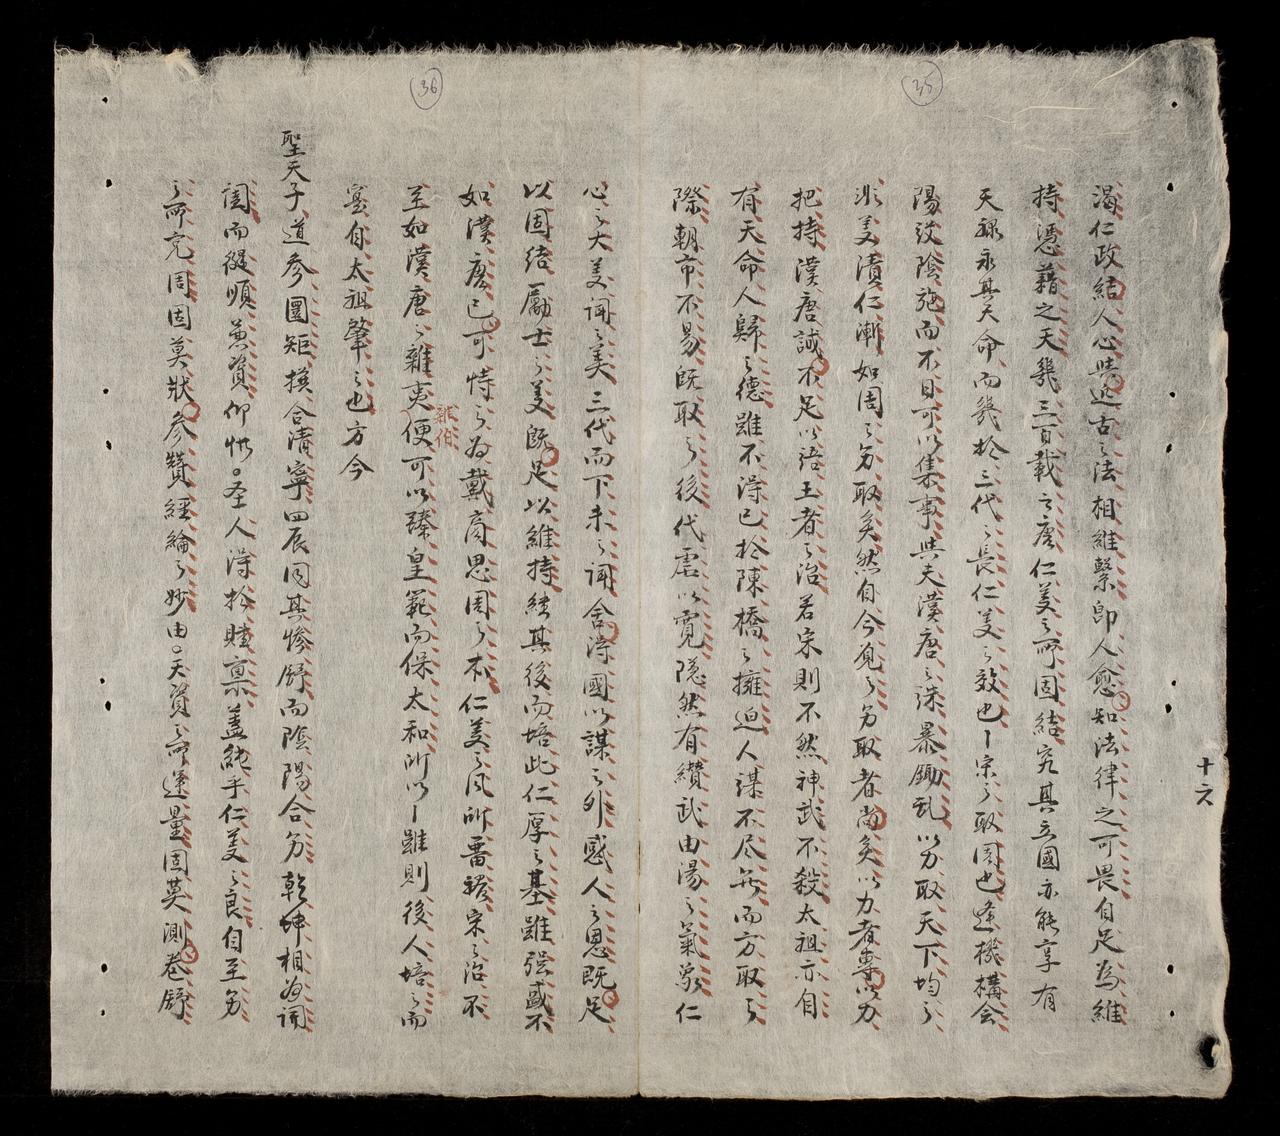 35
渴仁政結人心與近古之法相維繫卽人愈知法律之可畏自足為維
持憑藉之天幾三百載之唐仁美之所固結究其立國亦能享有
天祿永其天命而幾於三代之長仁美之效也丨宋之取國也逢機構会
陽設陰施而不日可以集事與夫漢唐之誅暴鋤乱以力取天下均之
非美漬仁漸如周之為取矣然自今覌之為取者尚矣以力者專以力
把持漢唐誠不足以語王者之治若宋則不然神武不殺太祖亦自
有天命人歸之德雖不得已於陳橋之擁迫人謀不尽無而方取之
際朝市不易既取之後代虐以寬隱然有纘武由湯之氣象仁
十六
36
心之大美聞之美三代而下未之聞舍得國以謀之外感人之恩既足
以固結勵士之美既足以維持繞其後而培此仁厚之基雖强盛不
如漢唐已可恃之為戴商思周之本仁美之風所畱裰宋之治不
至如漢唐之雜夷便可以臻皇範而保太和所以丨雖則後人培之而
雜伯
寔自太祖肇之也方今
聖天子道參圓矩撫合清寧四辰同其慘舒而陰陽合為乾坤相為調
闔而從順兼資仰惟圣人得於賦稟蓋純乎仁美之良自至為
之所充周固莫狀參贊經綸之妙由天資之所運量固莫測卷舒